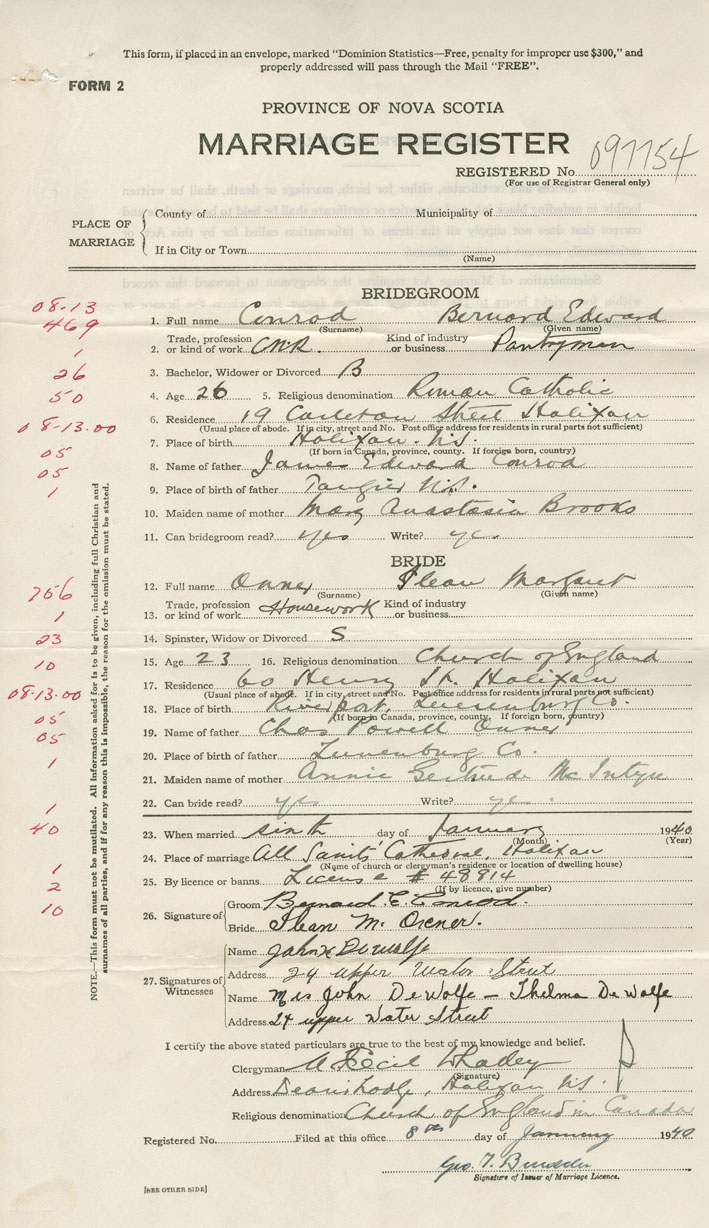 This form, if placed in an envelope, marked "Dominion Statistics—Free, penalty for improper use $300," and
properly addressed will pass through the Mail "FREE".
FORM 2
PROVINCE OF NOVA SCOTIA
MARRIAGE REGISTER
REGISTERED No. 097754
(For use of Registrar General only)
PLACE OF MARRIAGE
County of Municipality of
If in City or Town
(Name)
BRIDEGROOM
08-13
469
1. Full name Conrod Bernard Edward
(Surname) (Given name)
1
2. Trade, profession or kind of work C.N.R. Kind of industry or business Pantryman
26
3. Bachelor, Widower or Divorced B
50
4. Age 26 5. Religious denomination Roman Catholic
08-13.00
6. Residence 19 Carleton Street Halifax
(Usual place of abode. If in city, street and No. Post office address for residents in rural parts not sufficient)
05
7. Place of birth Halifax. N.S.
(If born in Canada, province, county. If foreign born, country)
05
8. Name of father James Edward Conrod
1
9. Place of birth of father Tangier N.S.
10. Maiden name of mother Mary Anastasia Brooks
11. Can bridegroom read? yes Write? yes
BRIDE
756
12. Full name Margaret
(Surname) (Given name)
1
13. Trade, profession or kind of work Housework Kind of industry or business
23
14. Spinster, Widow or Divorced S
10
15. Age 23 16. Religious denomination Church of England
08-13-00
17. Residence 60 Henry St. Halifax
(Usual place of abode. If in city, street and No. Post office address for residents in rural parts not sufficient)
05
18. Place of birth Riverport, Lunenburg Co.
(If born in Canada, province, county. If foreign born, country)
05
19. Name of father Chas Powell
1
20. Place of birth of father Lunenburg Co.
21. Maiden name of mother Annie Gertrude McIntyre
1
22. Can bride read? yes Write? yes
40
23. When married sixth day of January 1940
(Month) (Year)
1
24. Place of marriage All Saints' Cathedral, Halifax
(Name of church or clergyman's residence or location of dwelling house)
2
25. By licence or banns License # 48814
(If by licence, give number)
10
26. Signature of
Groom Bernard E. Conrod.
Bride Ilean M.
27. Signatures of Witnesses
Name John DeWolfe
Address 24 Upper Water Street
Name Mrs John DeWolfe — Thelma DeWolfe
Address 24 upper Water Street
I certify the above stated particulars are true to the best of my knowledge and belief.
Clergyman
(Signature)
Address Deans Lodge, Halifax N.S.
Religious denomination Church of England in Canada
Registered No. Filed at this office 8th day of January 1940
Geo. T.
Signature of Issuer of Marriage Licence.
[SEE OTHER SIDE]
NOTE.—This form must not be mutilated. All information asked for is to be given, including full Christian and
surnames of all parties, and if for any reason this is impossible, the reason for the omission must be stated.